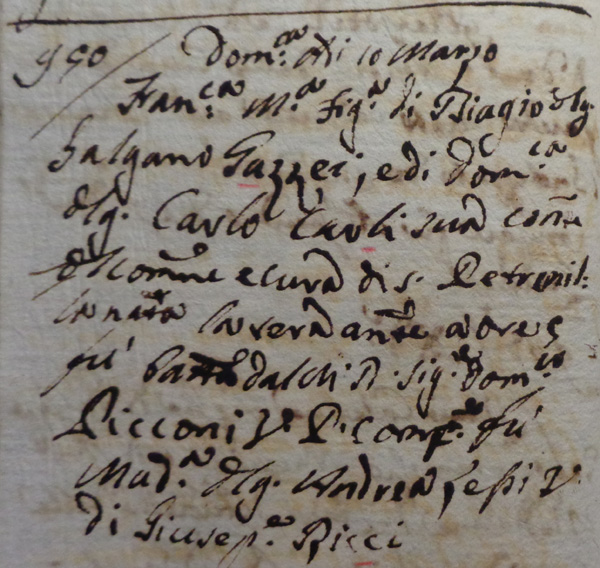 950 Dom.ca Adi 10 Marzo
Fran.ca M.a fig.a di Biagio dlq.
Galgano Gazzei, e di Dom.ca
dlq. Carlo Carli sua cons.te
di comune e cura di S. Petronil:
la nata la sera ante a ore 5
fù batta dal M. R. Sig.re Dom.co
Picconi V. P. comp.e fù
Mad.a dlq. Andrea
di Giusep.e Ricci